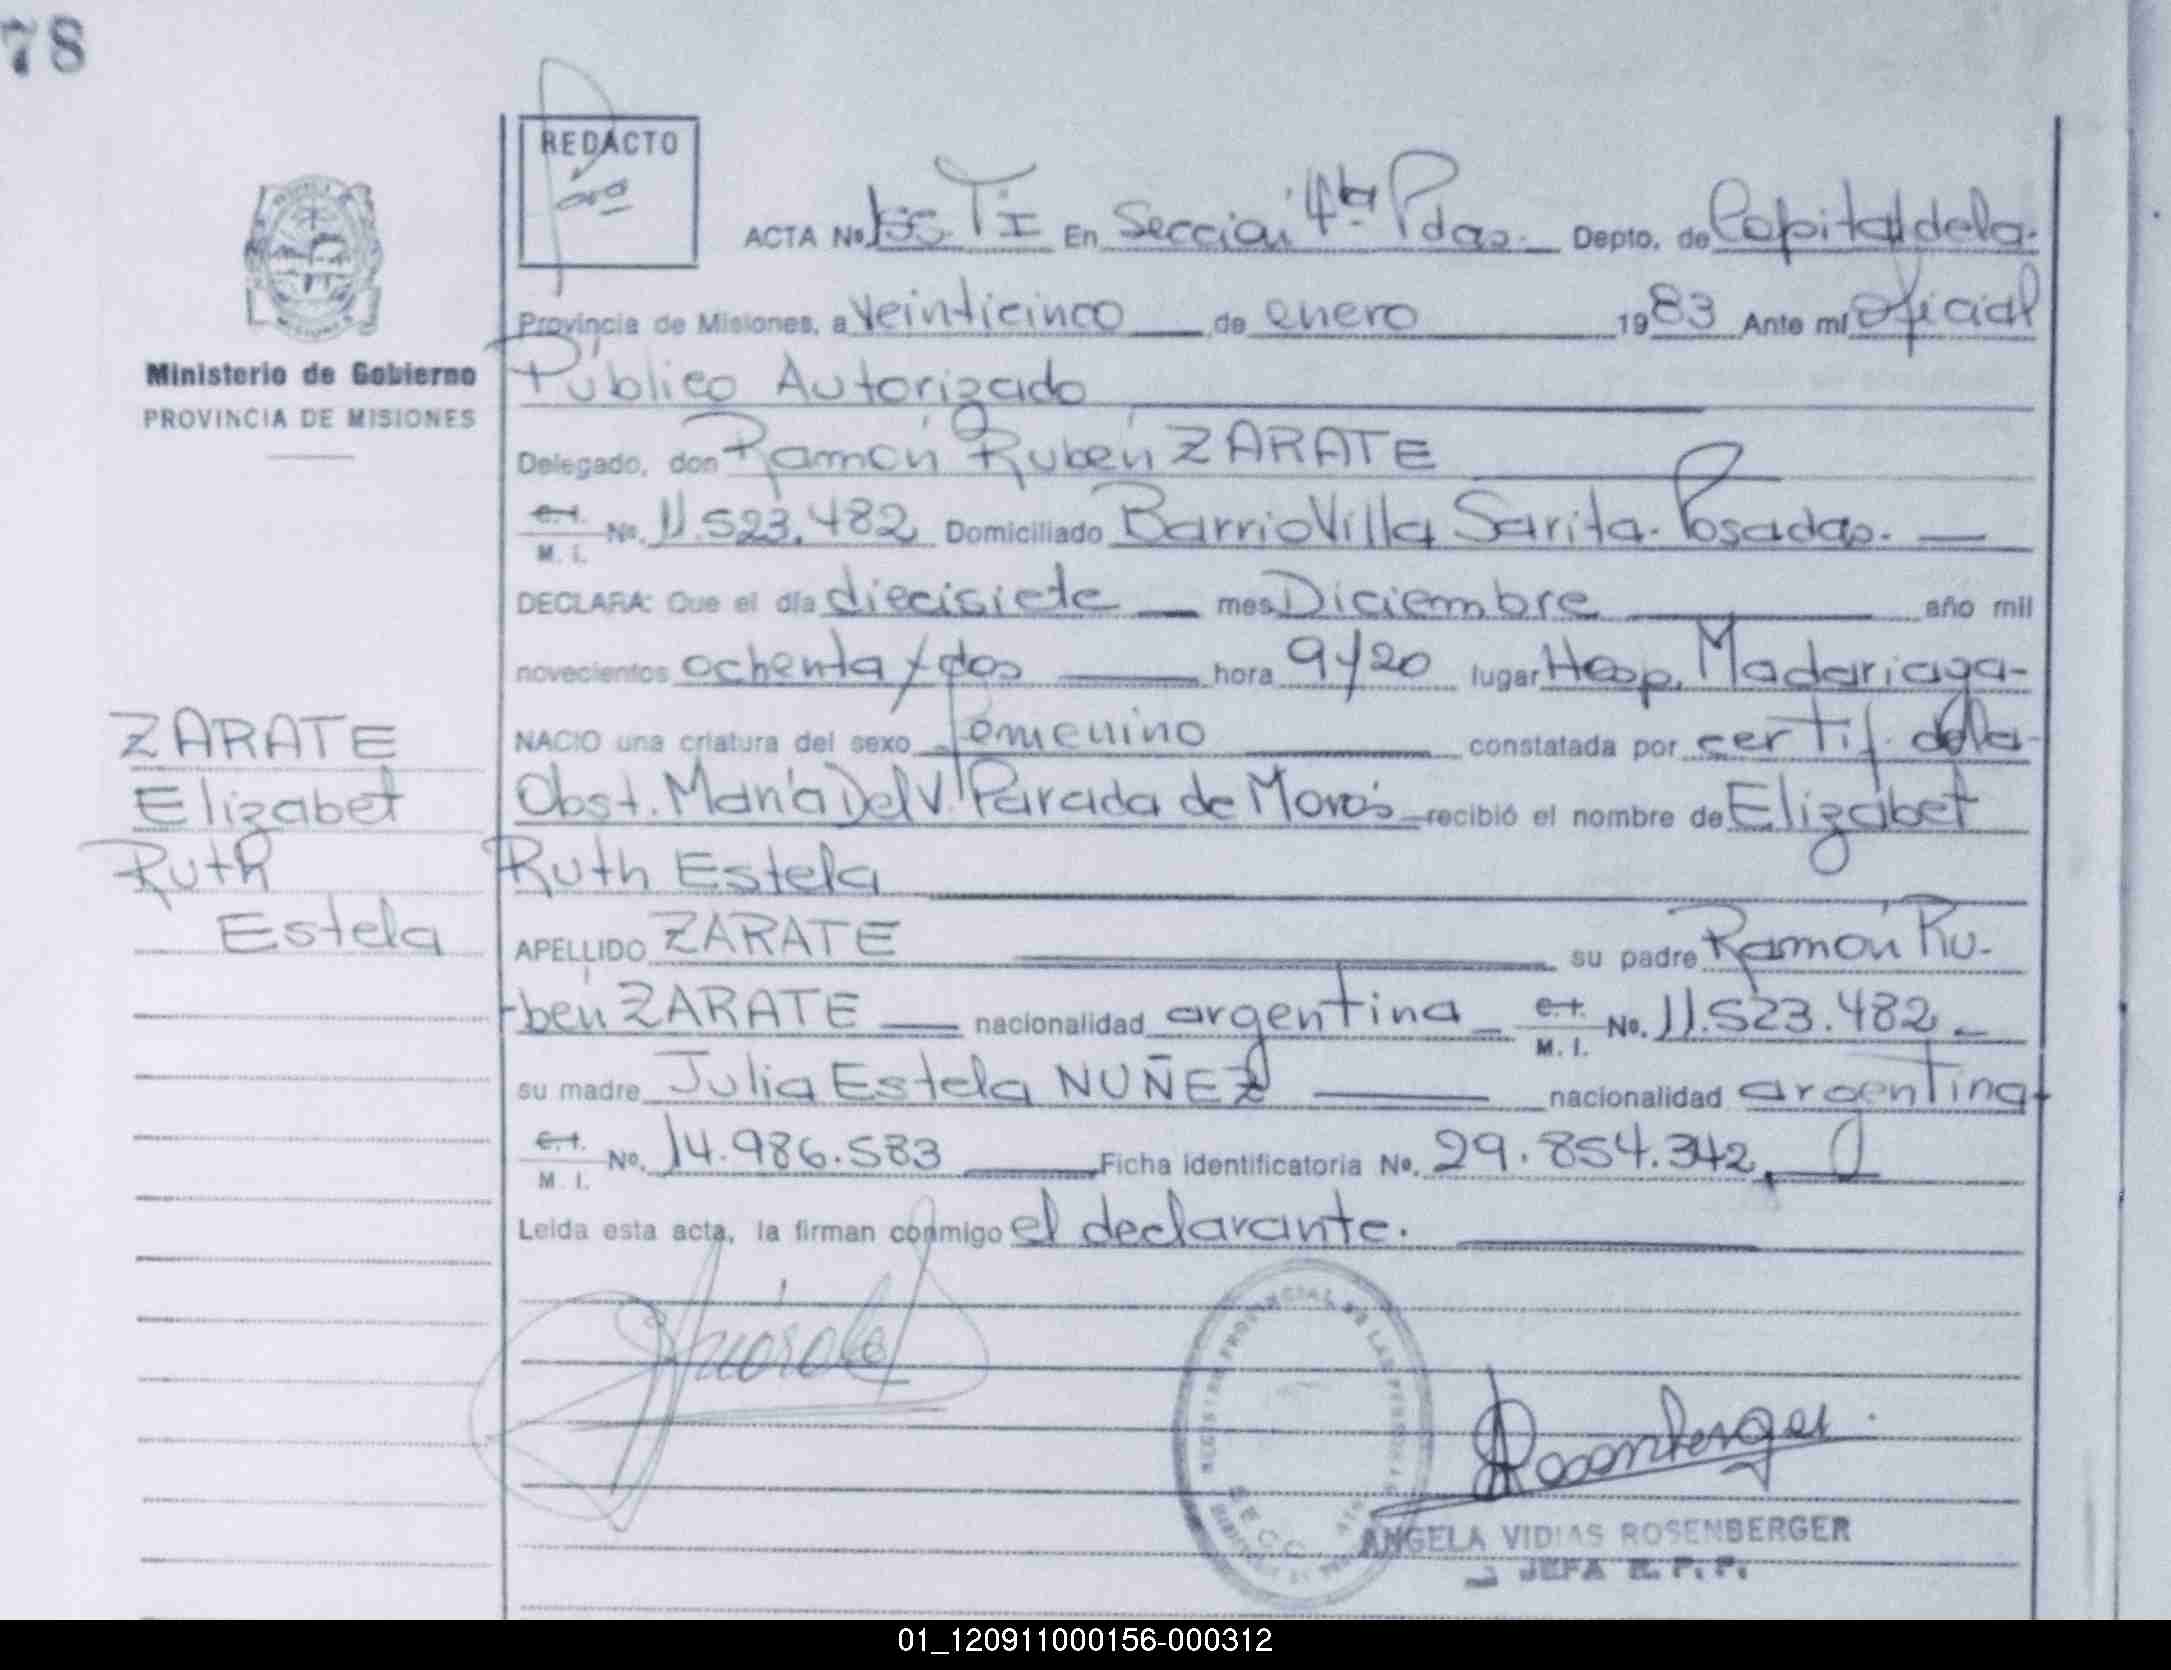 78
REDACTO
ACTA No. 155 TI En Sección 4ta Pdas. Depto. de Capital dela
Provincia de Misiones, a veinticinco de enero 1983 Ante mí Oficial
Ministerio de Gobierno
Público Autorizado
PROVINCIA DE MISIONES
Delegado, don Ramón Rubén ZARATE
C.I. M. I. No. 11.523.482 Domiciliado Barrio Villa Sarita. Posadas.
DECLARA: Que el día diecisiete mes Diciembre año mil
novecientos ochenta y dos hora 9y20 lugar Hosp. Madariaga
ZARATE
NACIO una criatura del sexo femenino constatada por certif. dela
Elizabet
Obst. María Del V. Parada de recibió el nombre de Elizabet
Ruth
Ruth Estela
Estela
APELLIDO ZARATE su padre Ramón Ru-
bén ZARATE nacionalidad argentina C.I. M. I. No. 11.523.482
su madre Julia Estela NUÑEZ nacionalidad argentina
C.I. M. I. No. 14.986.583 Ficha identificatoria No. 29.854.342
Leida esta acta, la firman conmigo el declarante.
REGISTRO PROVINCIAL DE LAS PERSONAS
SECC. 4ta
Rosenberger
ANGELA VIDIAS ROSENBERGER
JEFA R. P. P.
01_120911000156-000312